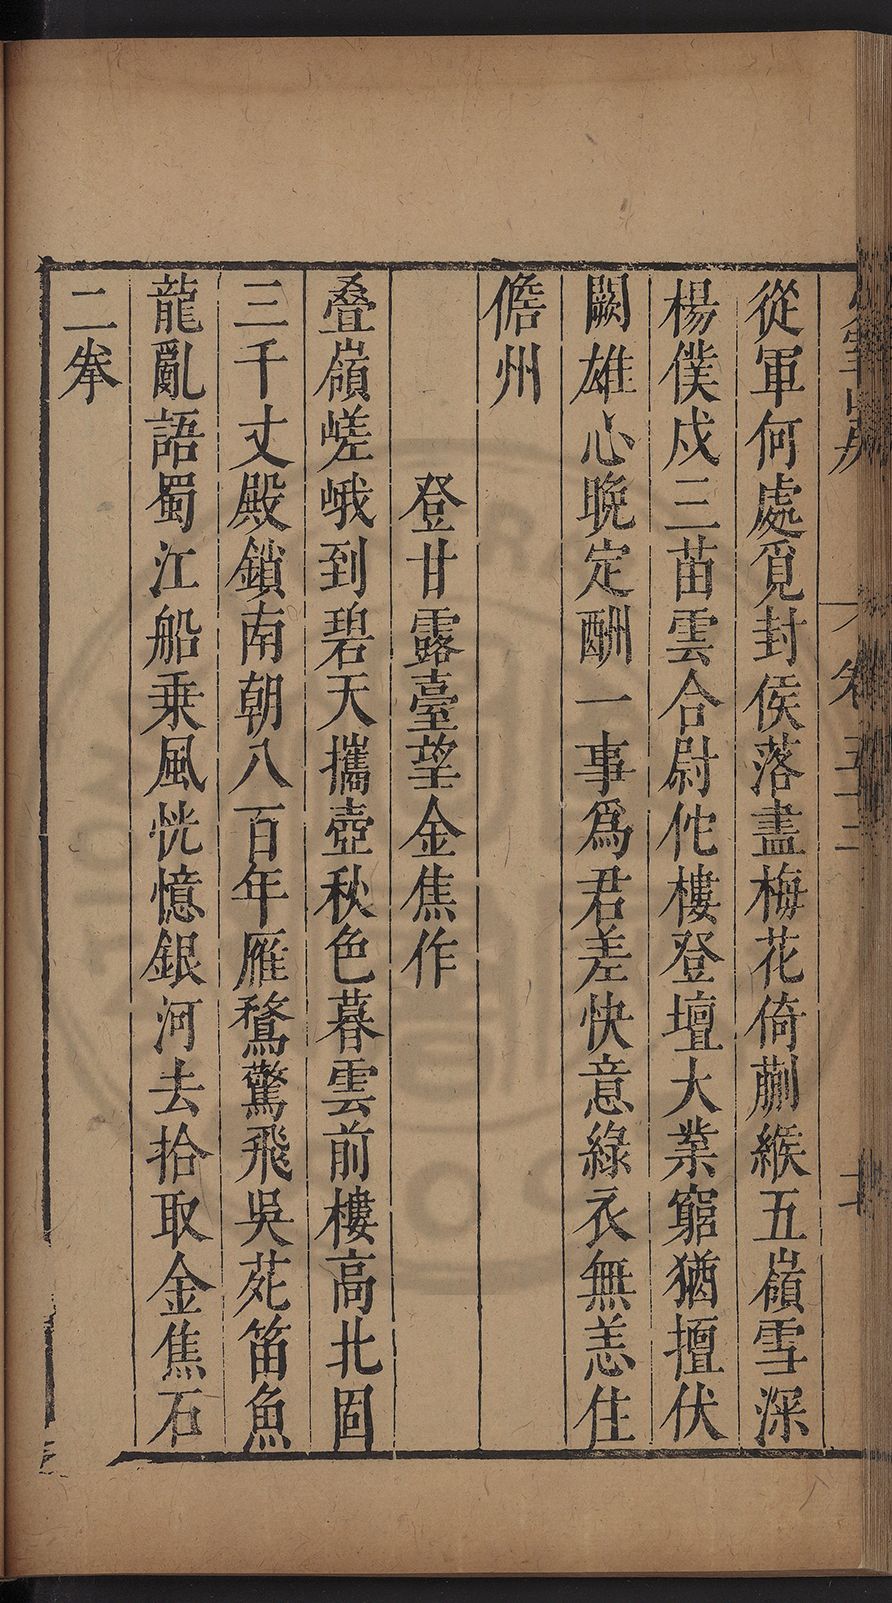 從軍何處覓封侯落盡梅花倚蒯緱五嶺雪深
楊僕戍三苗雲合尉佗樓登壇大業窮猶擅伏
闕雄心晚定酬一事爲君差快意綠衣無恙住
儋州
登甘露臺望金焦作
叠嶺嵯峨到碧天攜壺秋色暮雲前樓高北固
三千丈殿鎖南朝八百年雁鶩驚飛吳苑笛魚
龍亂語蜀江船乗風恍憶銀河去拾取金焦石
二拳